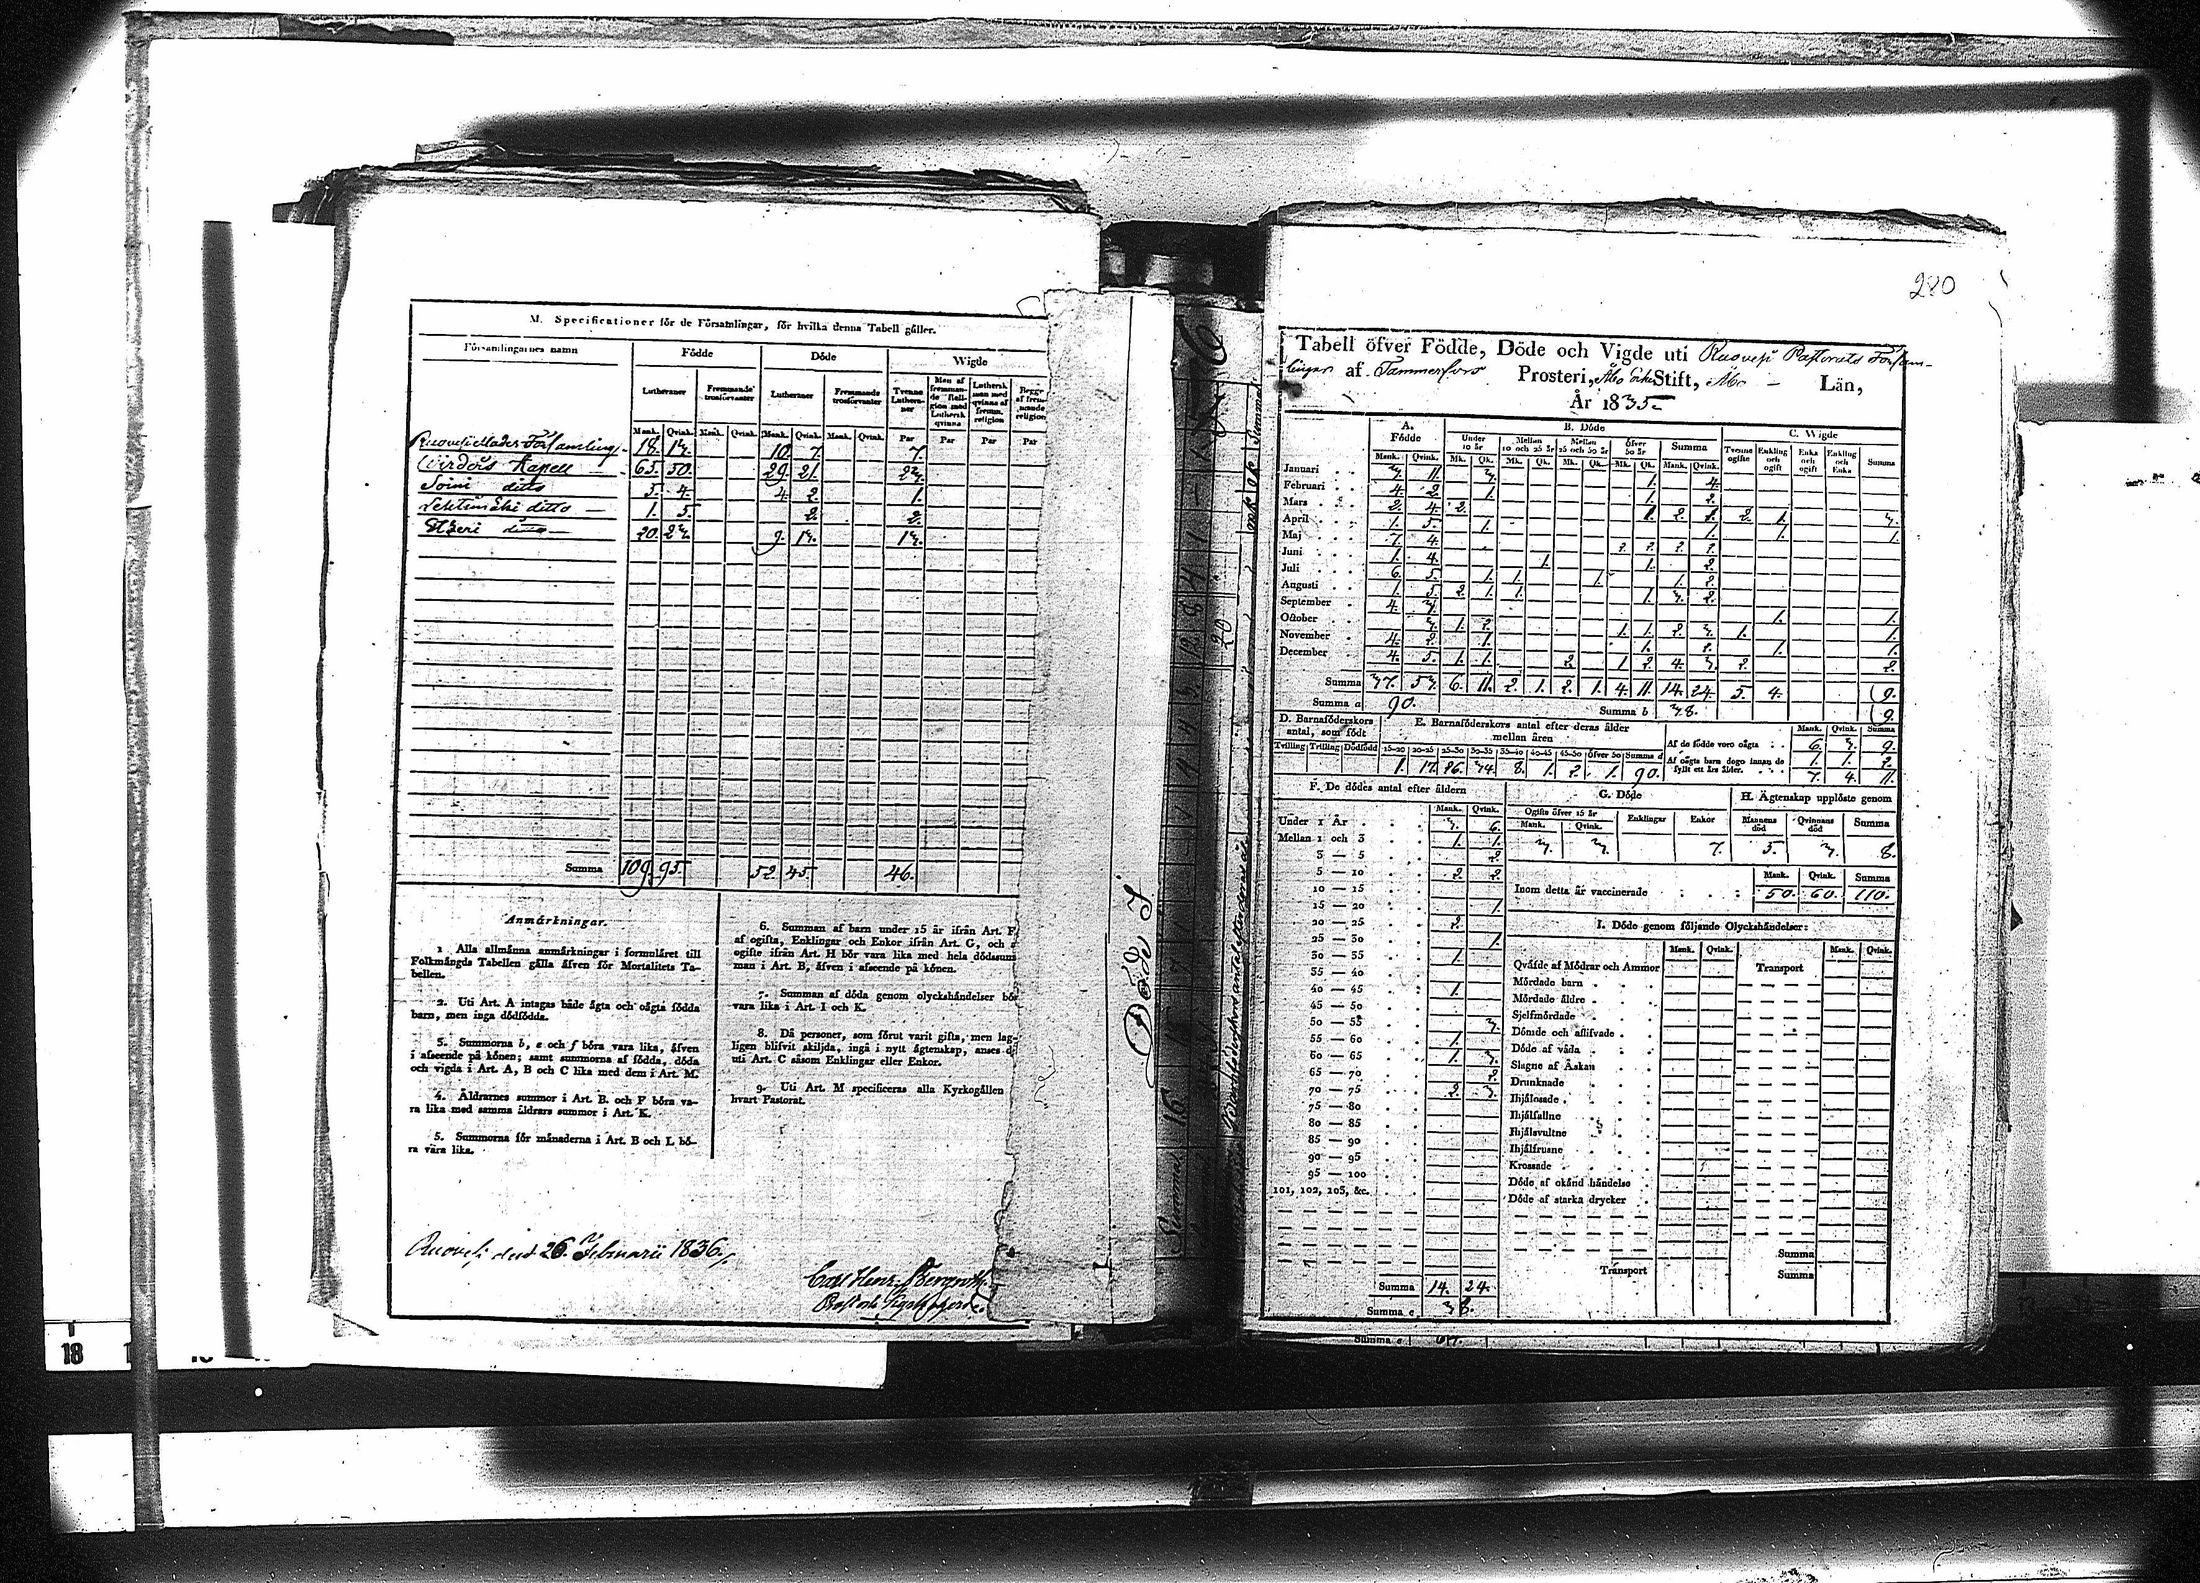 M. Specificationer för de Församlingar, för hvilka denna Tabell gäller.
Församlingarnes namn Födde Döde Wigde
Lutheraner Fremmande trosförvanter Lutheraner Fremmande trosförvanter Tvenne Lutheraner Man af fremmande Religion med Luthersk qvinna Luthersk man med qvinna af fremm. religion Begge af fremmande religion
Mank. Qvink. Mank. Qvink. Mank. Qvink. Mank. Qvink. Par Par Par Par
Ruovesi Moder Församling 18. 13. 10. 7. 7.
Virdois Kapell 65. 50. 29. 21. 23.
Soini ditto 5. 4. 4. 2. 1.
ditto 1. 5. 2. 2.
ditto 20. 23. 9. 13. 13.
Summa 109. 95. 52. 45. 46.
Anmärkningar.
1 Alla allmänna anmärkningar i formuläret till
Folkmängds Tabellen gälla äfven för Mortalitets Ta-
bellen.
2. Uti Art. A intagas både ägta och oägta födda
barn, men inga dödfödda.
3. Summorna b, e och f böra vara lika, äfven
i afseende på könen; samt summorna af födda, döda
och vigda i Art. A, B och C lika med dem i Art. M.
4. Åldrarnes summor i Art. B. och F böra va-
ra lika med samma åldrars summor i Art. K.
5. Summorna för månaderna i Art. B och L bö-
ra vära lika.
6. Summan af barn under 15 år ifrån Art. F,
af ogifta, Enklingar och Enkor ifrån Art. G, och
ogifte ifrån Art. H bör vara lika med hela dödssum
man i Art. B, äfven i afseende på könen.
7. Summan af döda genom olyckshändelser bör
vara lika i Art. I och K.
8. Då personer, som förut varit gifta, men lag-
ligen blifvit skiljda, ingå i nytt ägtenskap, anses d
uti Art. C såsom Enklingar eller Enkor.
9. Uti Art. M specificeras alla Kyrkogällen
hvart Pastorat.
Ruovesi den 26 Februarii 1836.
Carl Henr. Bergroth
Döde
Summa 16
280
Tabell öfver Födde, Döde och Vigde uti Ruovesi Pastorats Försam-
lingar af Tammerfors Prosteri, Åbo Stift, Åbo Län,
År 1835
A. Födde B. Döde C. Wigde
Under 10 år Mellan 10 och 25 år Mellan 25 och 50 år Öfver 50 år Summa Tvenne ogifte Enkling och ogift Enka och ogift Enkling och Enka Summa
Mank. Qvink. Mk. Qk. Mk. Qk. Mk. Qk. Mk. Qk. Mank. Qvink.
Januari 3. 11. 3. 1. 4.
Februari 4. 2. 1. 1. 2.
Mars 2. 4. 2. 1. 2. 1. 2. 1. 3.
April 1. 5. 1. 1. 1. 1.
Maj 7. 4. 2. 2. 2. 2.
Juni 1. 4. 1. 1. 2.
Juli 6. 5. 1. 1. 1. 1. 2.
Augusti 1. 5. 2. 1. 1. 1. 3. 2.
September 4. 3. 1. 1.
October 3. 1. 2. 1. 1. 2. 3. 1. 1.
November 4. 2. 1. 1. 2. 1. 1.
December 4. 5. 1. 1. 2. 1. 2. 4. 3. 2. 2.
Summa 37. 53. 6. 11. 2. 1. 2. 1. 4. 11. 14. 24. 5. 4. 9.
Summa a 90. Summa b 38. 9.
D. Barnaföderskors antal, som födt
E. Barnaföderskors antal efter deras ålder mellan åren
Mank. Qvink. Summa
Tvilling Trilling Dödfödd 15-20 20-25 25-30 30-35 35-40 40-45 45-50 öfver 50 Summa d
1. 17. 26. 34. 8. 1. 2. 1. 90.
Af de födde voro oägta 6. 3. 9.
Af oägta barn dogo innan de fyllt ett års ålder. 1. 1. 2.
7. 4. 11.
F. De dödes antal efter åldern
Mank. Qvink.
Under 1 År 3. 6.
Mellan 1 och 3 1. 1.
3 — 5 2.
5 — 10 2. 2.
10 — 15
15 — 20 1.
20 — 25 2.
25 — 30 1.
30 — 35 1.
35 — 40
40 — 45 1.
45 — 50
50 — 55 3.
55 — 60 1.
60 — 65 1. 3.
65 — 70 2.
70 — 75 2. 3.
75 — 80
80 — 85
85 — 90
90 — 95
95 — 100
101, 102, 103, &c.
Summa 14. 24.
Summa e 38.
G. Döde
Ogifte öfver 15 år Enklingar Enkor
Mank. Qvink.
3. 3. 7.
H. Ägtenskap upplöste genom
Mannens död Qvinnans död Summa
5. 3. 8.
Mank. Qvink. Summa
Inom detta år vaccinerade 50. 60. 110.
I. Döde genom följande Olyckshändelser:
Mank. Qvink. Mank. Qvink.
Qväfde af Mödrar och Ammor Transport
Mördade barn
Mördade äldre
Sjelfmördade
Dömde och aflifvade
Döde af våda
Slagne af Åskan
Drunknade
Ihjälosade
Ihjälfallne
Ihjälsvultne
Ihjälfrusne
Krossade
Döde af okänd händelse
Döde af starka drycker
Summa
Transport Summa
Summa e
18